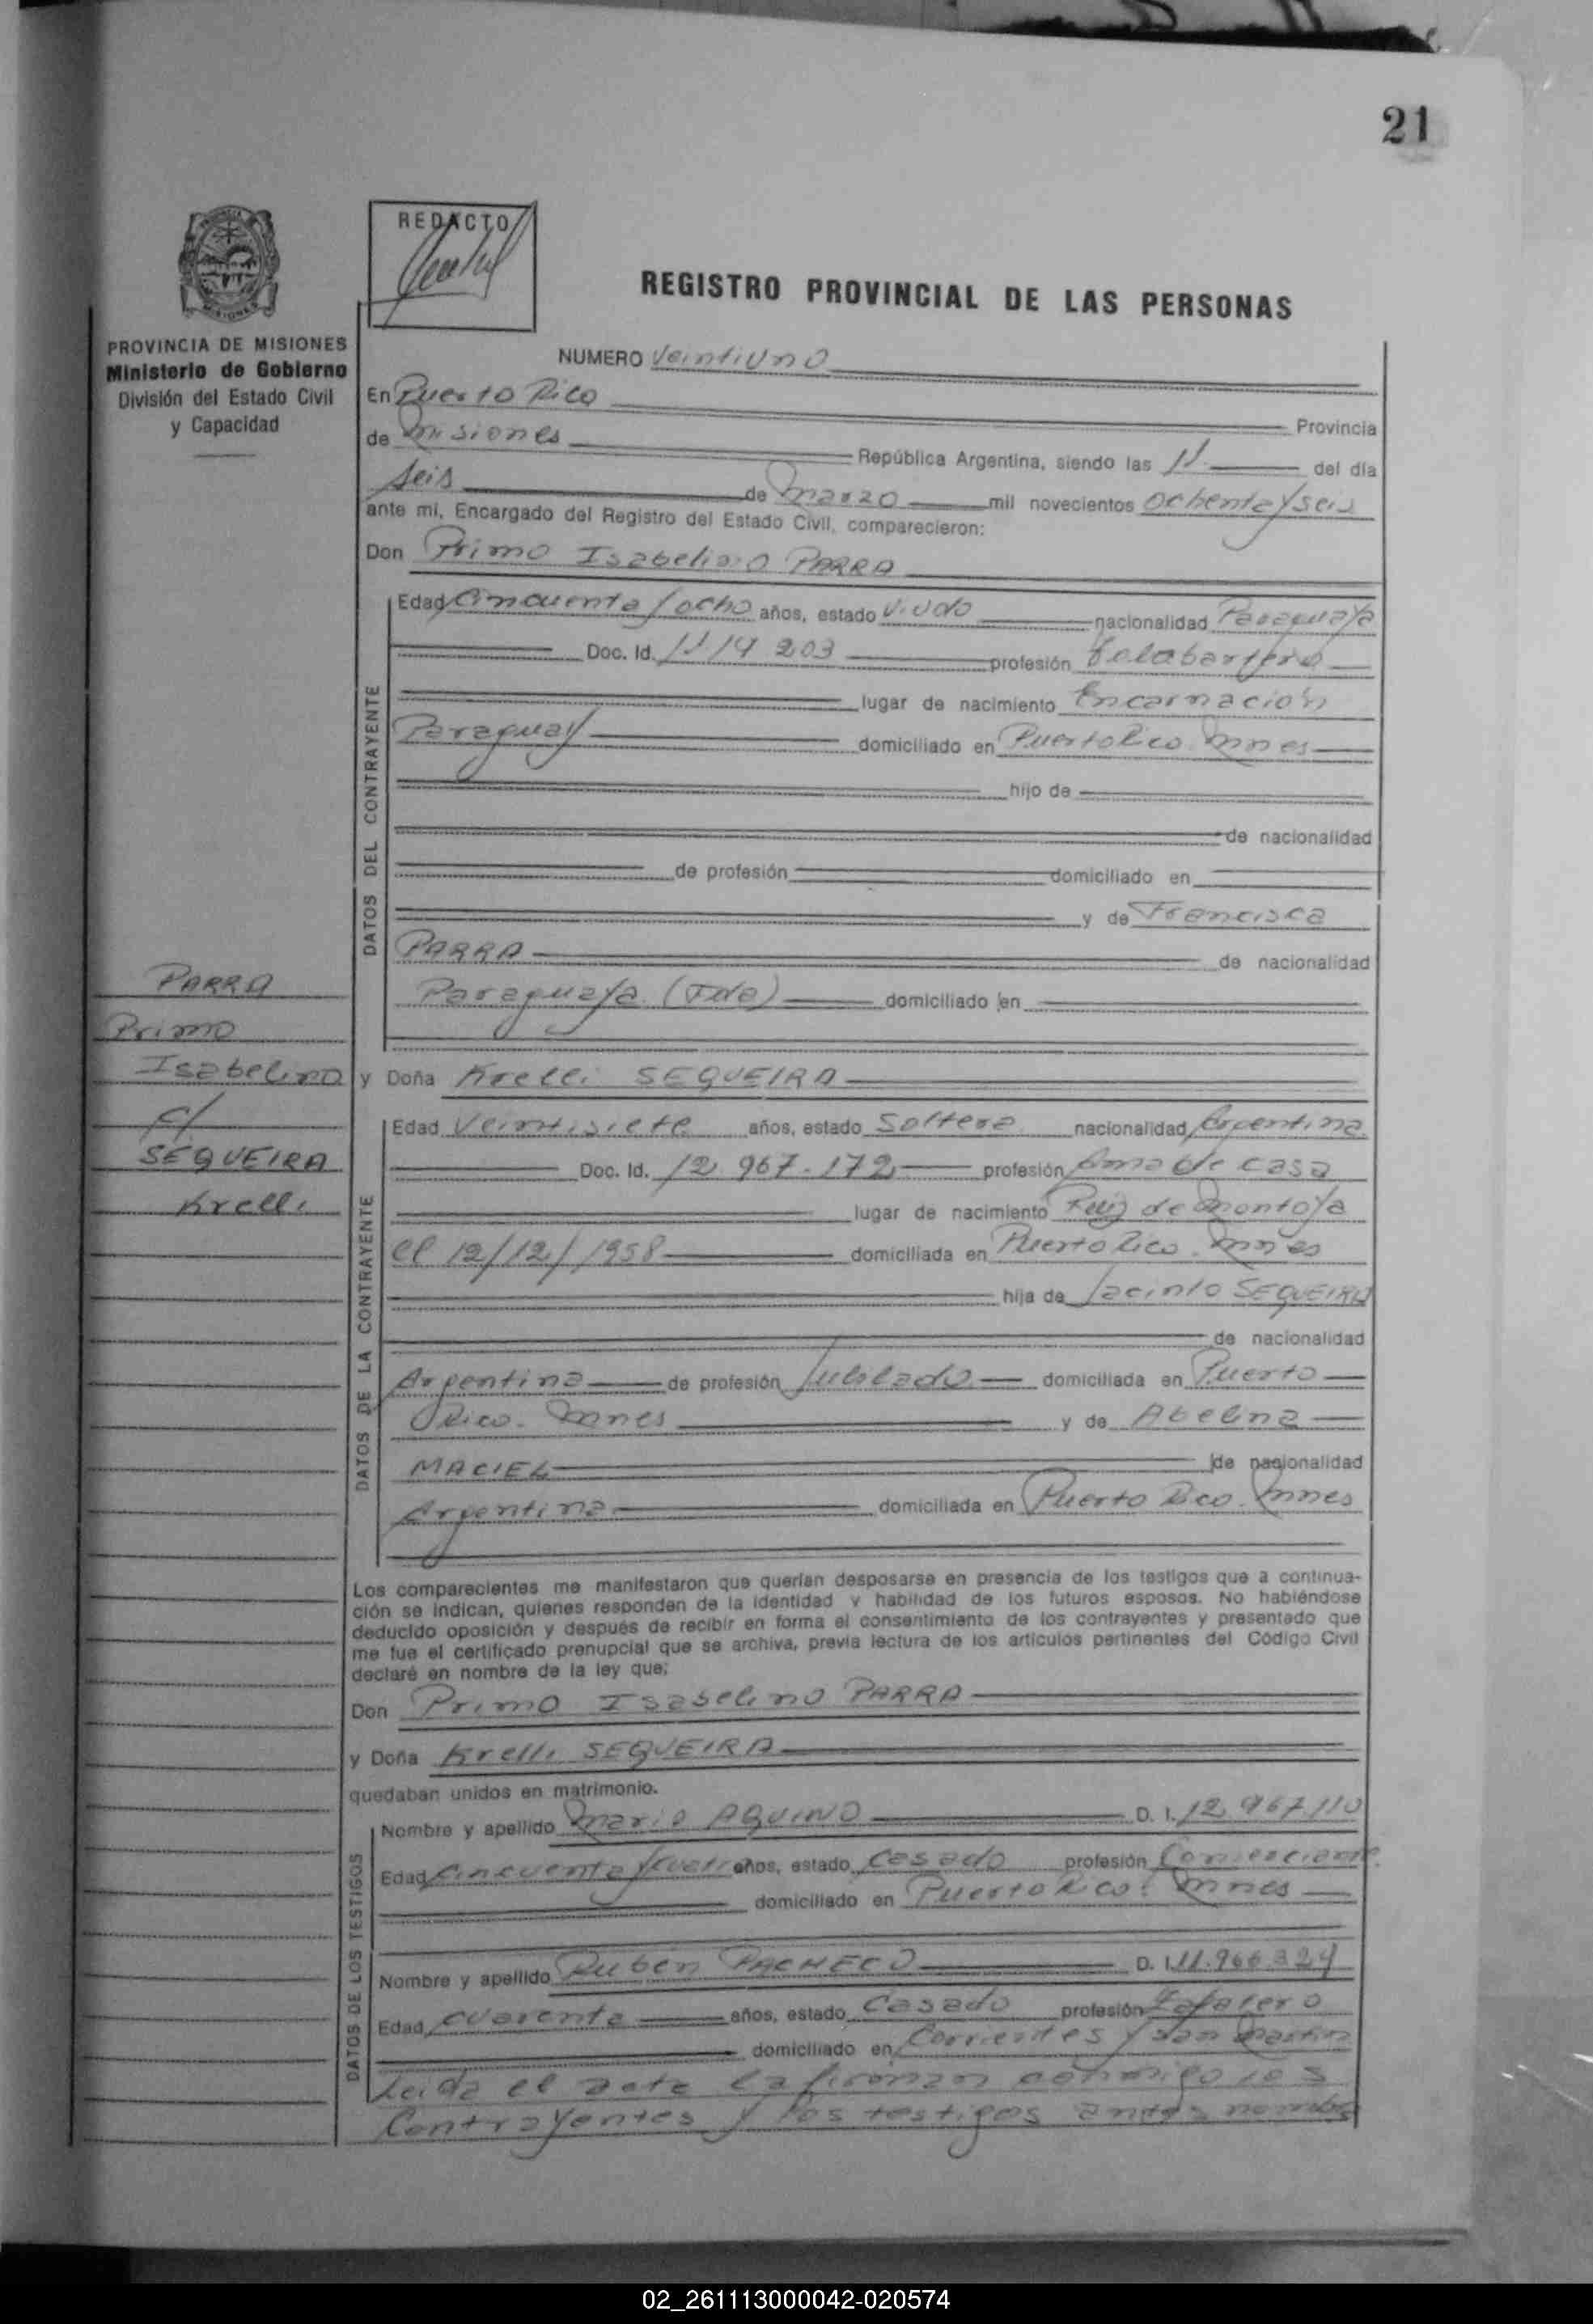 21
REDACTO
REGISTRO PROVINCIAL DE LAS PERSONAS
PROVINCIA DE MISIONES
Ministerio de Gobierno
División del Estado Civil
y Capacidad
NUMERO Veintiuno
En Puerto Rico Provincia
de Misiones República Argentina, siendo las 11 del día
seis de marzo mil novecientos ochenta y seis
ante mí, Encargado del Registro del Estado Civil, comparecieron:
Don Primo Isabelino PARRA
DATOS DEL CONTRAYENTE
Edad Cincuenta y ocho años, estado Viudo nacionalidad Paraguaya
Doc. Id. profesión Talabartero
lugar de nacimiento Encarnación
Paraguay domiciliado en Puerto Rico Mnes
hijo de
de nacionalidad
de profesión domiciliado en
y de Francisca
PARRA de nacionalidad
Paraguaya (Fda) domiciliado en
PARRA
Primo
Isabelino
c/
SEQUEIRA
Krelli
y Doña Krelli SEQUEIRA
DATOS DE LA CONTRAYENTE
Edad Veintisiete años, estado Soltera nacionalidad Argentina
Doc. Id. 12.967.172 profesión Ama de casa
lugar de nacimiento Ruiz de Montoya
el 12/12/1958 domiciliada en Puerto Rico. Mnes
hija de Jacinto SEQUEIRA
de nacionalidad
Argentina de profesión Jubilado domiciliada en Puerto
Rico. Mnes y de Abelina
MACIEL de nacionalidad
Argentina domiciliada en Puerto Rico. Mnes
Los comparecientes me manifestaron que querían desposarse en presencia de los testigos que a continua-
ción se indican, quienes responden de la identidad y habilidad de los futuros esposos. No habiéndose
deducido oposición y después de recibir en forma el consentimiento de los contrayentes y presentado que
me fue el certificado prenupcial que se archiva, previa lectura de los artículos pertinentes del Código Civil
declaré en nombre de la ley que:
Don Primo Isabelino PARRA
y Doña Krelli SEQUEIRA
quedaban unidos en matrimonio.
DATOS DE LOS TESTIGOS
Nombre y apellido Mario AQUINO D. I. 12.967.110
Edad Cincuenta y cuatro años, estado Casado profesión Comerciante
domiciliado en Puerto Rico. Mnes
Nombre y apellido Ruben PACHECO D. I. 11.966.324
Edad Cuarenta años, estado Casado profesión Zapatero
domiciliado en Corrientes y San Martin
Leida el acta la firman conmigo los
Contrayentes y los testigos antes
02_261113000042-020574